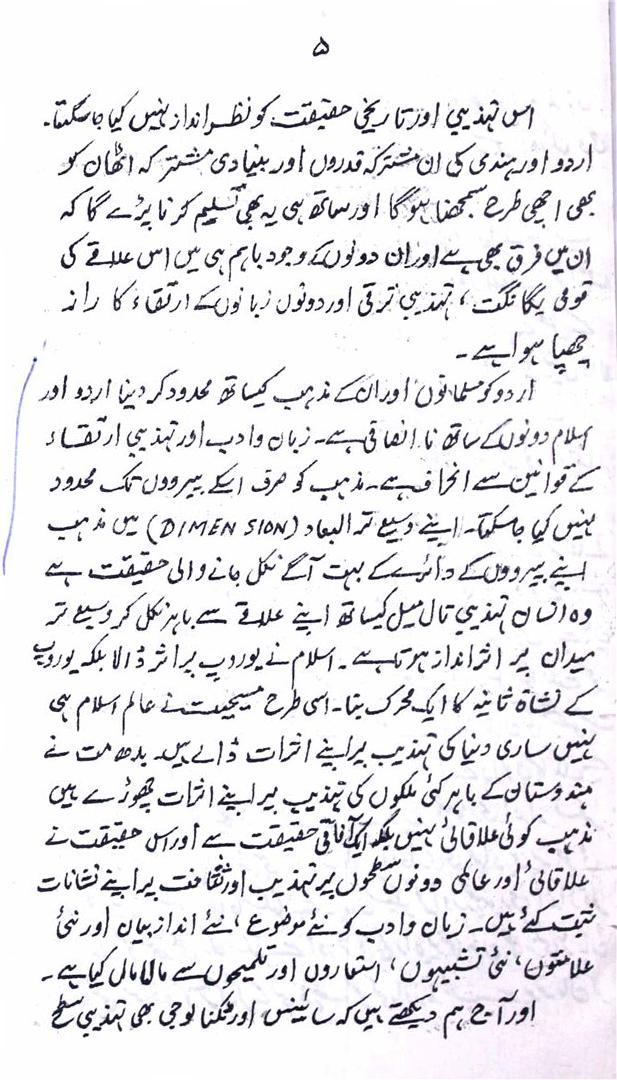 ۵
اس تہذیبی اور تاریخی حقیقت کو نظر انداز نہیں کیا جا سکتا۔
اردو اور ہندی کی ان مشترکہ قدروں اور بنیادی مشترکہ اٹھان کو
بھی اچھی طرح سمجھنا ہوگا اور ساتھ ہی یہ بھی تسلیم کرنا پڑے گا کہ
ان میں فرق بھی ہے اور ان دونوں کے وجود باہم ہی میں اس علاقے کی
قومی یگانگت، تہذیبی ترقی اور دونوں زبانوں کے ارتقاء کا راز
چھپا ہوا ہے۔
اردو کو مسلمانوں اور ان کے مذہب کیساتھ محدود کر دینا اردو اور
اسلام دونوں کے ساتھ نا انصافی ہے۔ زبان و ادب اور تہذیبی ارتقاء
کے قوانین سے انحراف ہے۔ مذہب کو صرف اسکے پیرووں تک محدود
نہیں کیا جا سکتا۔ اپنے وسیع تر ابعاد (DIMENSION) میں مذہب
اپنے پیرووں کے دائرے کے بہت آگے نکل جانے والی حقیقت ہے
وہ انسان تہذیبی تال میل کیساتھ اپنے علاقے سے باہر نکل کر وسیع تر
میدان پر اثر انداز ہوتا ہے۔ اسلام نے یوروپ پر اثر ڈالا بلکہ یوروپ
کے نشاۃ ثانیہ کا ایک محرک بنا۔ اسی طرح مسیحیت نے عالم اسلام ہی
نہیں ساری دنیا کی تہذیب پر اپنے اثرات ڈالے ہیں۔ بدھ مت نے
ہندوستان کے باہر کئی ملکوں کی تہذیب پر اپنے اثرات چھوڑے ہیں
مذہب کوئی علاقائی نہیں بلکہ ایک آفاقی حقیقت سے اور اس حقیقت نے
علاقائی اور عالمی دونوں سطحوں پر تہذیب اور ثقافت پر اپنے نشانات
ثبت کئے ہیں۔ زبان و ادب کو نئے موضوع، نئے انداز بیان اور نئی
علامتوں، نئی تشبیہوں، استعاروں اور تلمیحوں سے مالا مال کیا ہے۔
اور آج ہم دیکھتے ہیں کہ سائنس اور ٹکنالوجی بھی تہذیبی سطح